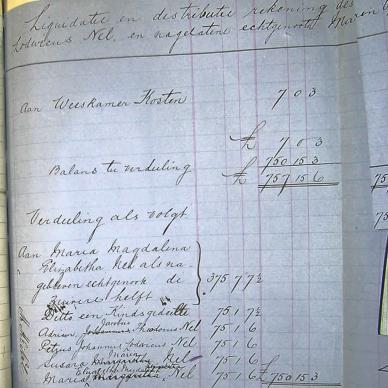 Liquidatie en distributie rekening des
Lodwicus Nel, en nagelatene echtgenoote Maria
Aan Weeskamer Kosten 7 0 3
£ 7 0 3
Balans te verdeeling 750 15 3
£ 757 15 6
Verdeeling als volgt
Aan Maria Magdalena
Elizabetha Nel als na-
gebleven echtgenoote de
zuivere helft 375 7 7½
Ditto een Kindsgedeelte 75 1 7½
Adrian Jacobus Johannes Nel 75 1 6
Petrus Johannes Lodovicus Nel 75 1 6
Susara Maria Margaretha Nel 75 1 6
Maria Elizabetha Margaretha Nel 75 1 6 £ 750 15 3